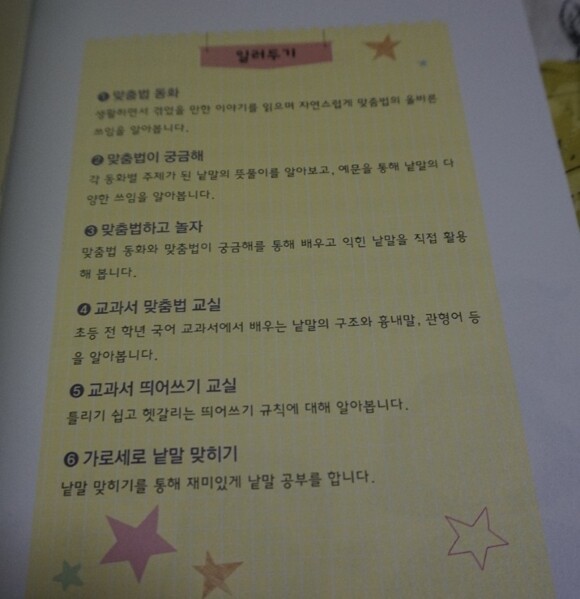 일러두기
❶ 맞춤법 동화
생활하면서 경험을 만한 이야기를 읽으며 자연스럽게 맞춤법의 올바른
쓰임을 알아봅니다.
❷ 맞춤법이 궁금해
각 동화별 주제가 된 낱말의 뜻풀이를 알아보고, 예문을 통해 낱말의 다
양한 쓰임을 알아봅니다.
❸ 맞춤법하고 놀자
맞춤법 동화와 맞춤법이 궁금해를 통해 배우고 익힌 낱말을 직접 활용
해 봅니다.
❹ 교과서 맞춤법 교실
초등 전 학년 국어 교과서에서 배우는 낱말의 구조와 흉내말, 관형어 등
을 알아봅니다.
❺ 교과서 띄어쓰기 교실
틀리기 쉽고 헷갈리는 띄어쓰기 규칙에 대해 알아봅니다.
❻ 가로세로 낱말 맞히기
낱말 맞히기를 통해 재미있게 낱말 공부를 합니다.